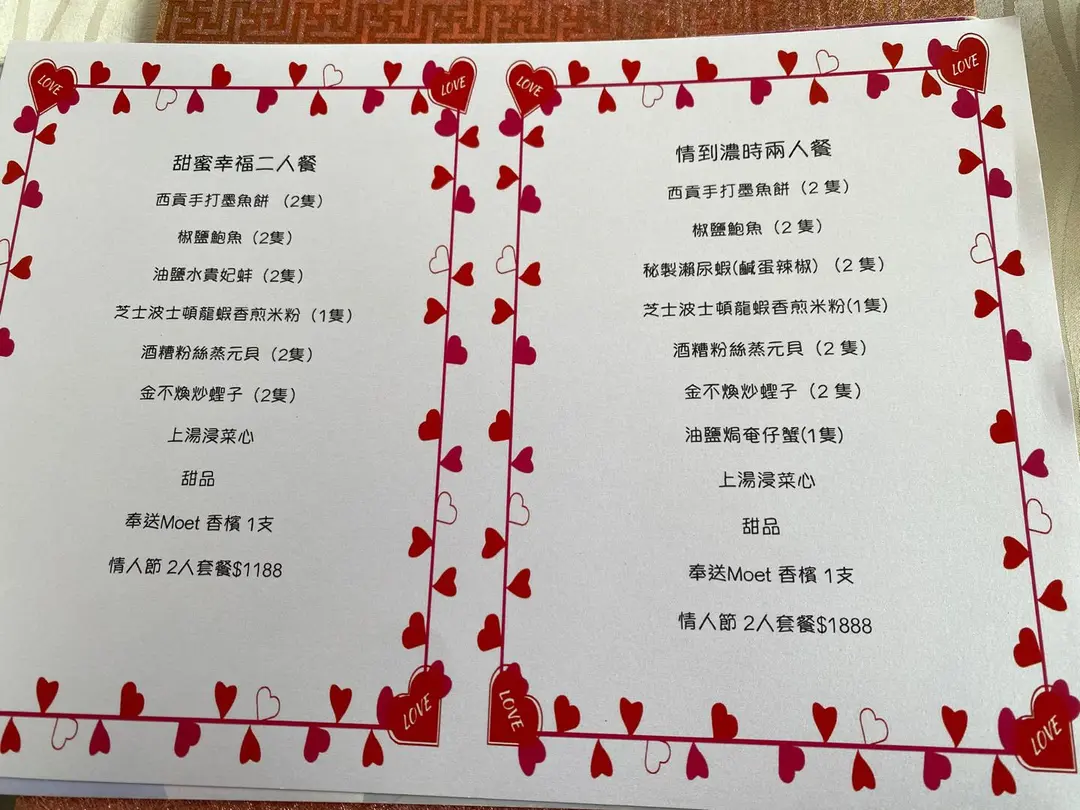 LOVE
LOVE
甜蜜幸福二人餐
西貢手打墨魚餅 （2隻）
椒鹽鮑魚（2隻）
油鹽水貴妃蚌（2隻）
芝士波士頓龍蝦香煎米粉（1隻）
酒糟粉絲蒸元貝（2隻）
金不煥炒蟶子（2隻）
上湯浸菜心
甜品
奉送Moet 香檳 1支
情人節 2人套餐$1188
LOVE
LOVE
LOVE
情到濃時兩人餐
西貢手打墨魚餅（2 隻）
椒鹽鮑魚（2 隻）
秘製瀨尿蝦(鹹蛋辣椒）（2 隻）
芝士波士頓龍蝦香煎米粉(1隻)
酒糟粉絲蒸元貝（2 隻）
金不煥炒蟶子（2 隻）
油鹽焗奄仔蟹(1隻)
上湯浸菜心
甜品
奉送Moet 香檳 1支
情人節 2人套餐$1888
LOVE
LOVE